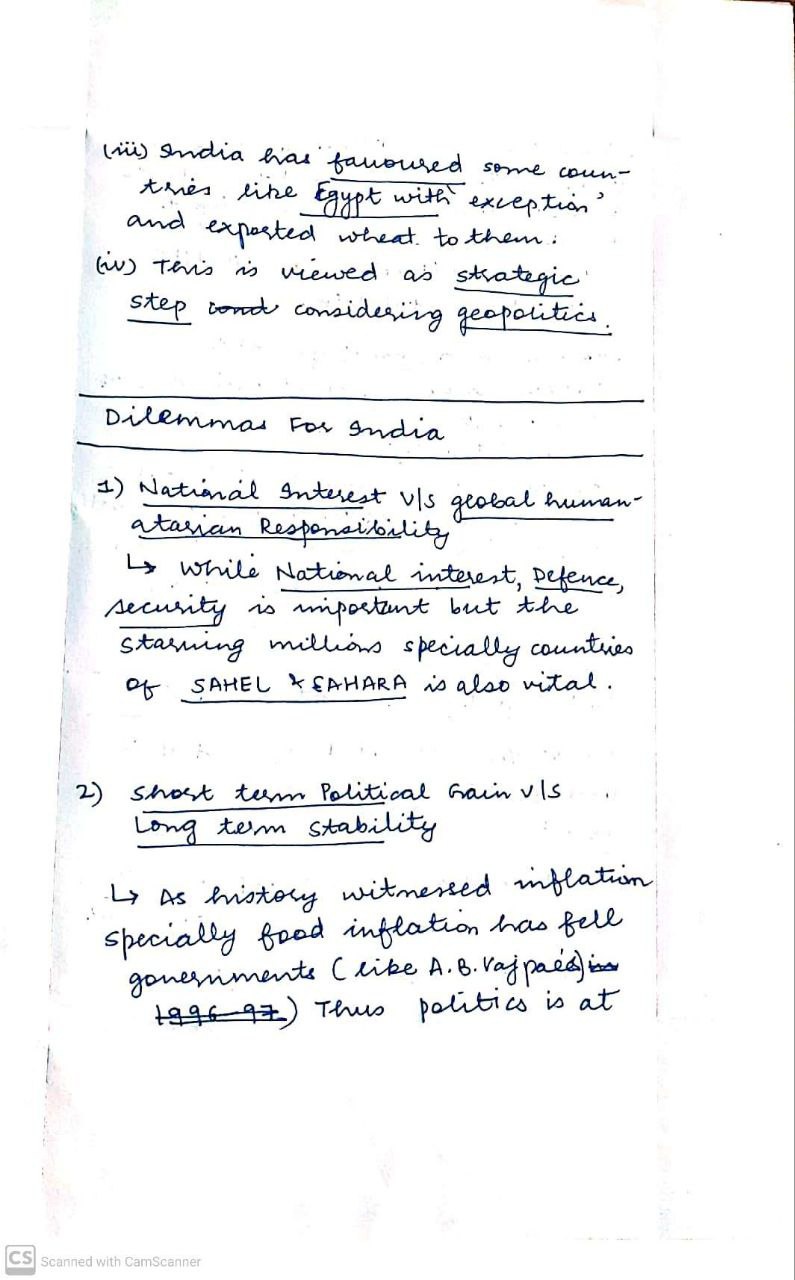 (iii) India has favoured some coun-
tries like Egypt with exception'
and exported wheat to them.
(iv) This is viewed as strategic
step cond considering geopolitics.
Dilemmas For India
1) National Interest v/s geobal human-
atarian Responsibility
↳ While National interest, Defence,
security is important but the
starving millions specially countries
of SAHEL & SAHARA is also vital.
2) Short term Political Gain v/s
Long term stability
↳ As history witnessed inflation
specially food inflation has fell
governments (like A.B. Vajpaee) in
1996-97) Thus politics is at
CS Scanned with CamScanner